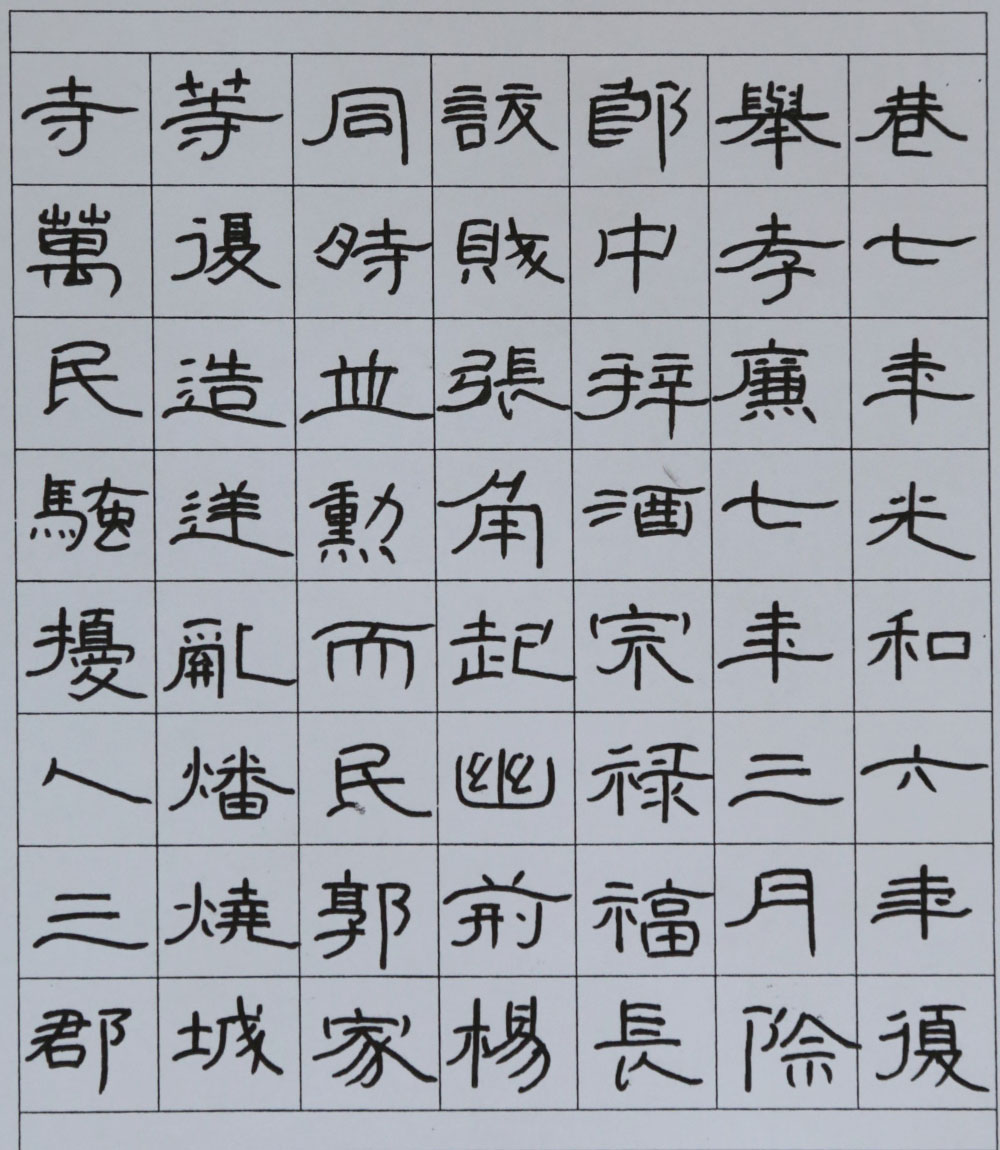 巷七年光和六年復
舉孝廉七年三月除
郎中拜酒宗禄福長
訞賊張角起幽荊楊
同時並勳而民郭家
等復造逆亂燔燒城
寺萬民騷擾人三郡